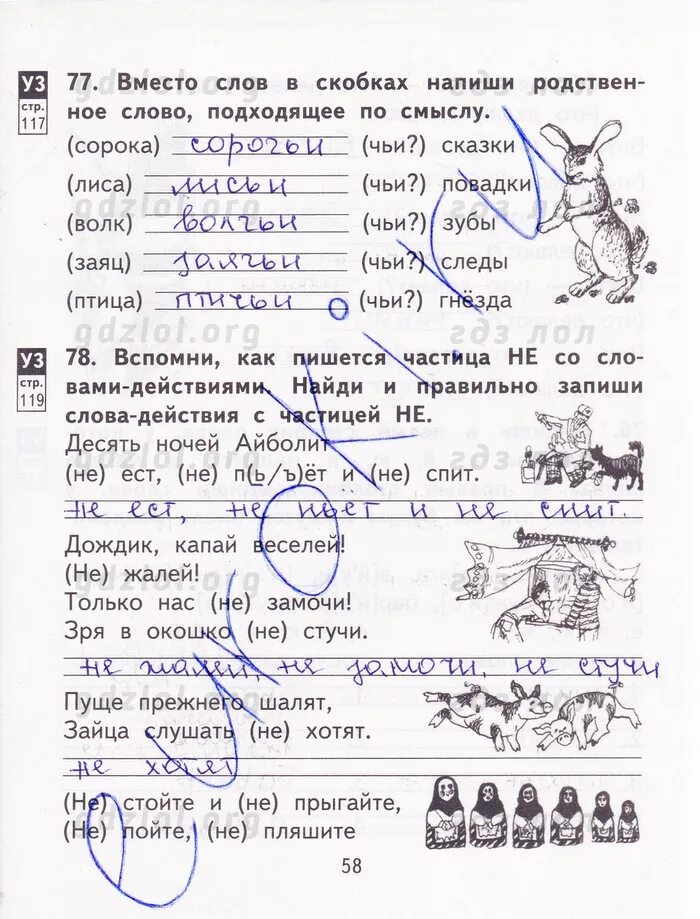 УЗ
стр.
117
77. Вместо слов в скобках напиши родствен-
ное слово, подходящее по смыслу.
(сорока) сорочьи (чьи?) сказки
(лиса) лисьи (чьи?) повадки
(волк) волчьи (чьи?) зубы
(заяц) заячьи (чьи?) следы
(птица) птичьи (чьи?) гнёзда
gdzlol.org гдз лол
УЗ
стр.
119
78. Вспомни, как пишется частица НЕ со сло-
вами-действиями. Найди и правильно запиши
слова-действия с частицей НЕ.
Десять ночей Айболит
(не) ест, (не) п(ь/ъ)ёт и (не) спит.
не ест, не пьёт и не спит.
Дождик, капай веселей!
(Не) жалей!
Только нас (не) замочи!
Зря в окошко (не) стучи.
не жалей, не замочи, не стучи
Пуще прежнего шалят,
Зайца слушать (не) хотят.
не хотят
(Не) стойте и (не) прыгайте,
(Не) пойте, (не) пляшите
58